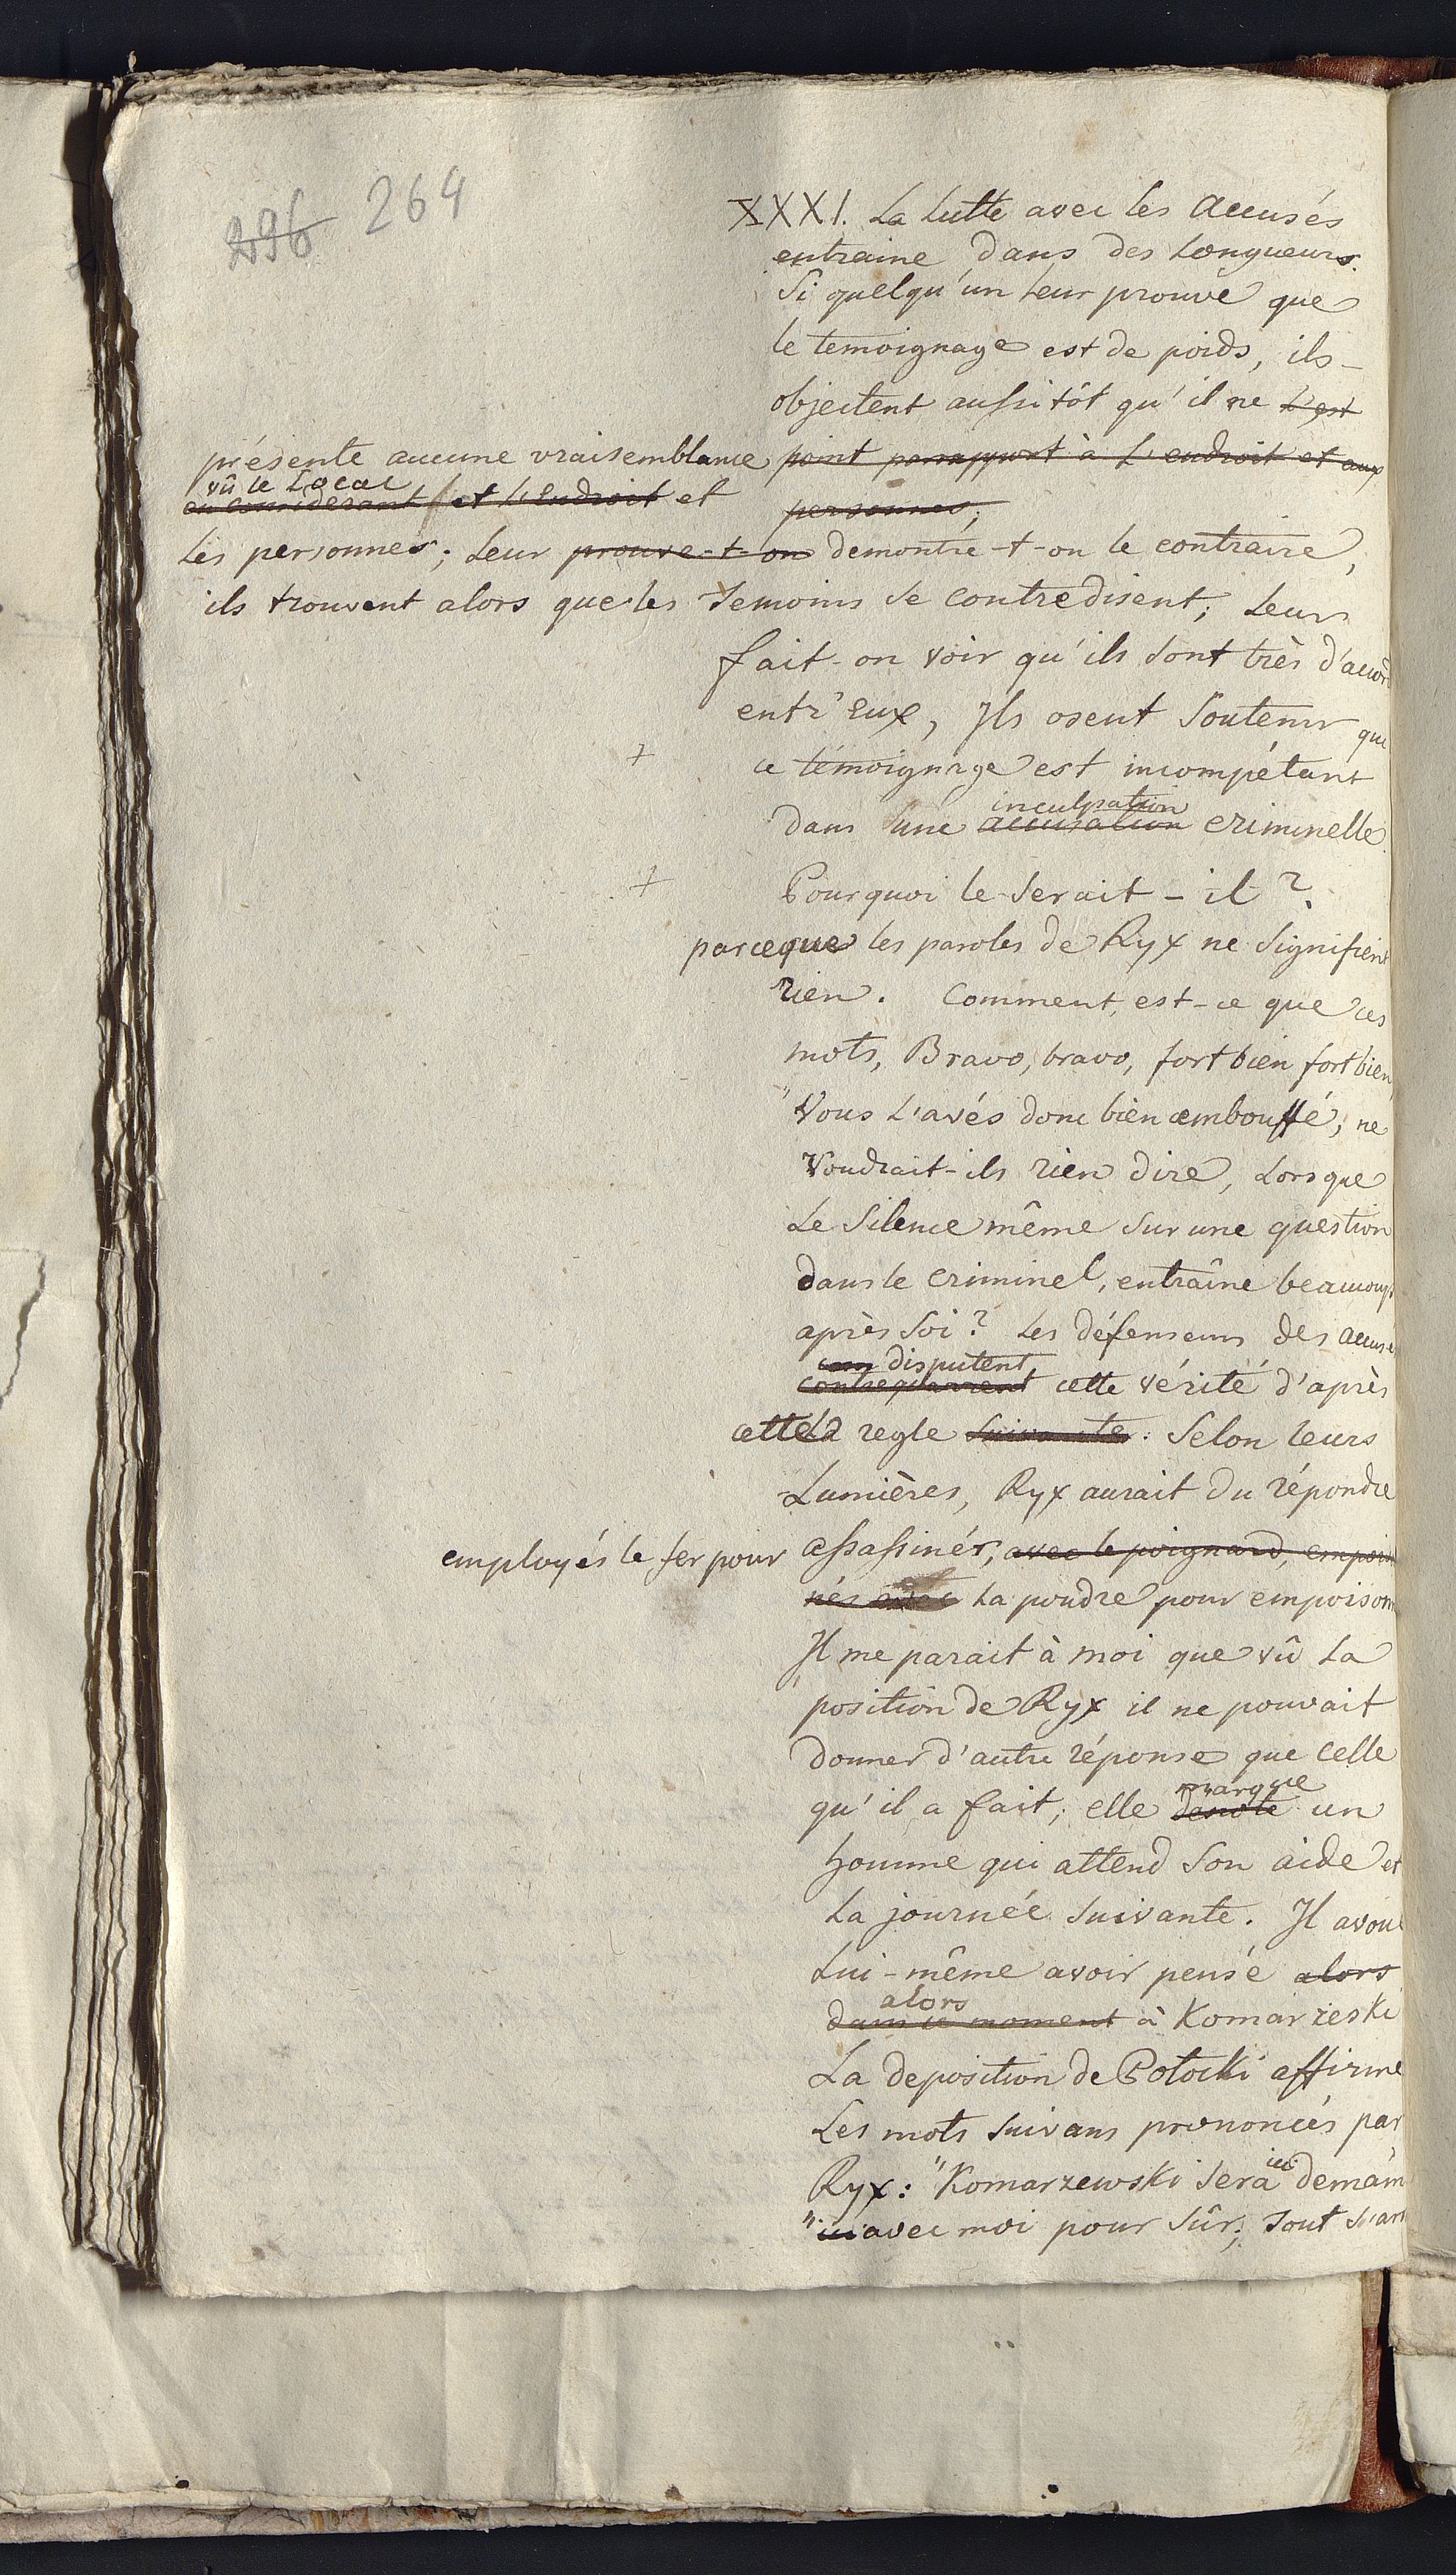 296 264
XXXI. La lutte avec les accusés
entraine dans des Longueurs.
Si quelqu'un leur prouve que
le temoignage est de poids, ils
objectent aussitôt qu'il ne l'est
présente aucune vraisemblance point parrapport à l'endroit et aux
vû le Local
en considerant et l'endroit et personnes;
les personnes; leur prouve-t-on demontre-t-on le contraire,
ils trouvent alors que les temoins se contredisent; leurs
fait-on voir qu'ils sont très d'accord
entr'eux, Ils osent soutenir que
+ ce témoignage est incompétant
inculpation
dans une accusation criminelle.
+ Pourquoi le serait-il?
parceque les paroles de Ryx ne signifient
rien. Comment, est-ce que ces
mots, Bravo, bravo, fort bien fort bien,
"Vous l'avés donc bien embouffé, ne
voudrait-ils rien dire, Lorsque
Le silence même sur une question
dans le criminel, entraîne beaucoup
après soi? Les défenseurs des accusé
com disputent
contrequarrent cette vérité d'après
cette La regle suivante: Selon leurs
Lumières, Ryx aurait du répondre
employés le fer pour assassiner, avec le poignard, empoison
nés avec la poudre pour empoison
Il me parait à moi que vû la
position de Ryx il ne pouvait
donner d'autre réponse que celle
marque
qu'il a fait; elle denote un
homme qui attend son aide et
la journée suivante. Il avoue
Lui-même avoir pensé alors
alors
dans ce moment à Komarzeski
La deposition de Potocki affirme
Les mots suivans prononcés par
ici
Ryx: "Komarzewski sera demain
"ici avec moi pour sûr; tout s'arr